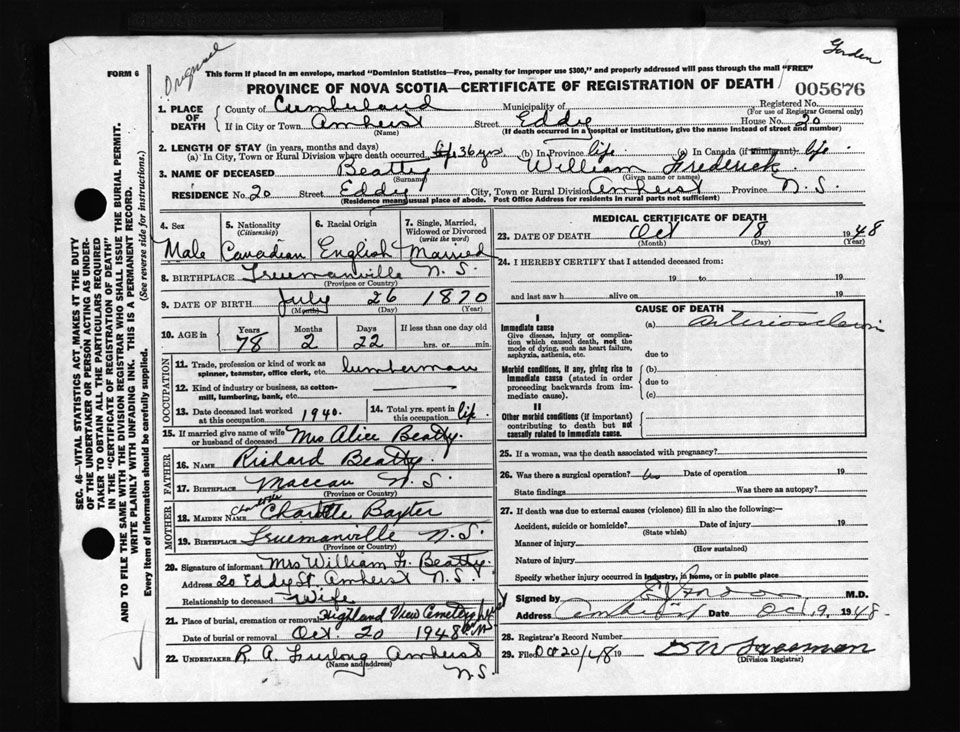 Gordon
Original
FORM 6
This form if placed in an envelope, marked "Dominion Statistics—Free, penalty for improper use $300," and properly addressed will pass through the mail "FREE"
PROVINCE OF NOVA SCOTIA—CERTIFICATE OF REGISTRATION OF DEATH
005676
1. PLACE OF DEATH
County of Cumberland Municipality of Registered No.
(For use of Registrar General only)
If in City or Town Amherst Street Eddy House No. 20
(Name) (If death occurred in a hospital or institution, give the name instead of street and number)
2. LENGTH OF STAY (in years, months and days)
(a) In City, Town or Rural Division where death occurred 36 yrs (b) In Province life (c) In Canada (if immigrant) life
3. NAME OF DECEASED Beatty William Frederick
(Surname) (Given name or names)
RESIDENCE No. 20 Street Eddy City, Town or Rural Division Amherst Province N.S.
(Residence means usual place of abode. Post Office Address for residents in rural parts not sufficient)
4. Sex
Male
5. Nationality
(Citizenship)
Canadian
6. Racial Origin
English
7. Single, Married, Widowed or Divorced
(write the word)
Married
8. BIRTHPLACE Truemanville N.S.
(Province or Country)
9. DATE OF BIRTH July 26 1870
(Month) (Day) (Year)
10. AGE in
Years Months Days If less than one day old
78 2 22 hrs. or min.
OCCUPATION
11. Trade, profession or kind of work as spinner, teamster, office clerk, etc. lumberman
12. Kind of industry or business, as cotton-mill, lumbering, bank, etc.
13. Date deceased last worked at this occupation 1940.
14. Total yrs. spent in this occupation life.
15. If married give name of wife or husband of deceased Mrs Alice Beatty.
FATHER
16. NAME Richard Beatty.
17. BIRTHPLACE Maccan N.S.
(Province or Country)
MOTHER
Charlotte
18. MAIDEN NAME Charlotte Baxter
19. BIRTHPLACE Truemanville N.S.
(Province or Country)
20. Signature of informant Mrs William F. Beatty.
Address 20 Eddy St. Amherst N.S.
Relationship to deceased Wife
21. Place of burial, cremation or removal Highland View Cemetery
Date of burial or removal Oct. 20 1948
22. UNDERTAKER R. A. Furlong Amherst
(Name and address)
N.S.
MEDICAL CERTIFICATE OF DEATH
23. DATE OF DEATH Oct 18 1948
(Month) (Day) (Year)
24. I HEREBY CERTIFY that I attended deceased from:
19 to 19
and last saw h alive on 19
CAUSE OF DEATH
I
Immediate cause
Give disease, injury or complication which caused death, not the mode of dying, such as heart failure, asphyxia, asthenia, etc.
(a) Arteriosclerosis
due to
Morbid conditions, if any, giving rise to immediate cause (stated in order proceeding backwards from immediate cause).
(b)
due to
(c)
II
Other morbid conditions (if important) contributing to death but not causally related to immediate cause.
25. If a woman, was the death associated with pregnancy?
26. Was there a surgical operation? Date of operation 19
State findings Was there an autopsy?
27. If death was due to external causes (violence) fill in also the following:—
Accident, suicide or homicide? Date of injury 19
(State which)
Manner of injury
(How sustained)
Nature of injury
Specify whether injury occurred in industry, in home, or in public place
Signed by M.D.
Address Amherst Date Oct. 19, 1948.
28. Registrar's Record Number
29. Filed Oct 20/48 19
(Division Registrar)
SEC. 46—VITAL STATISTICS ACT MAKES IT THE DUTY
OF THE UNDERTAKER OR PERSON ACTING AS UNDER-
TAKER TO OBTAIN ALL THE PARTICULARS REQUIRED
IN THE "CERTIFICATE OF REGISTRATION OF DEATH"
AND TO FILE THE SAME WITH THE DIVISION REGISTRAR WHO SHALL ISSUE THE BURIAL PERMIT.
WRITE PLAINLY WITH UNFADING INK. THIS IS A PERMANENT RECORD.
Every item of information should be carefully supplied. (See reverse side for instructions.)